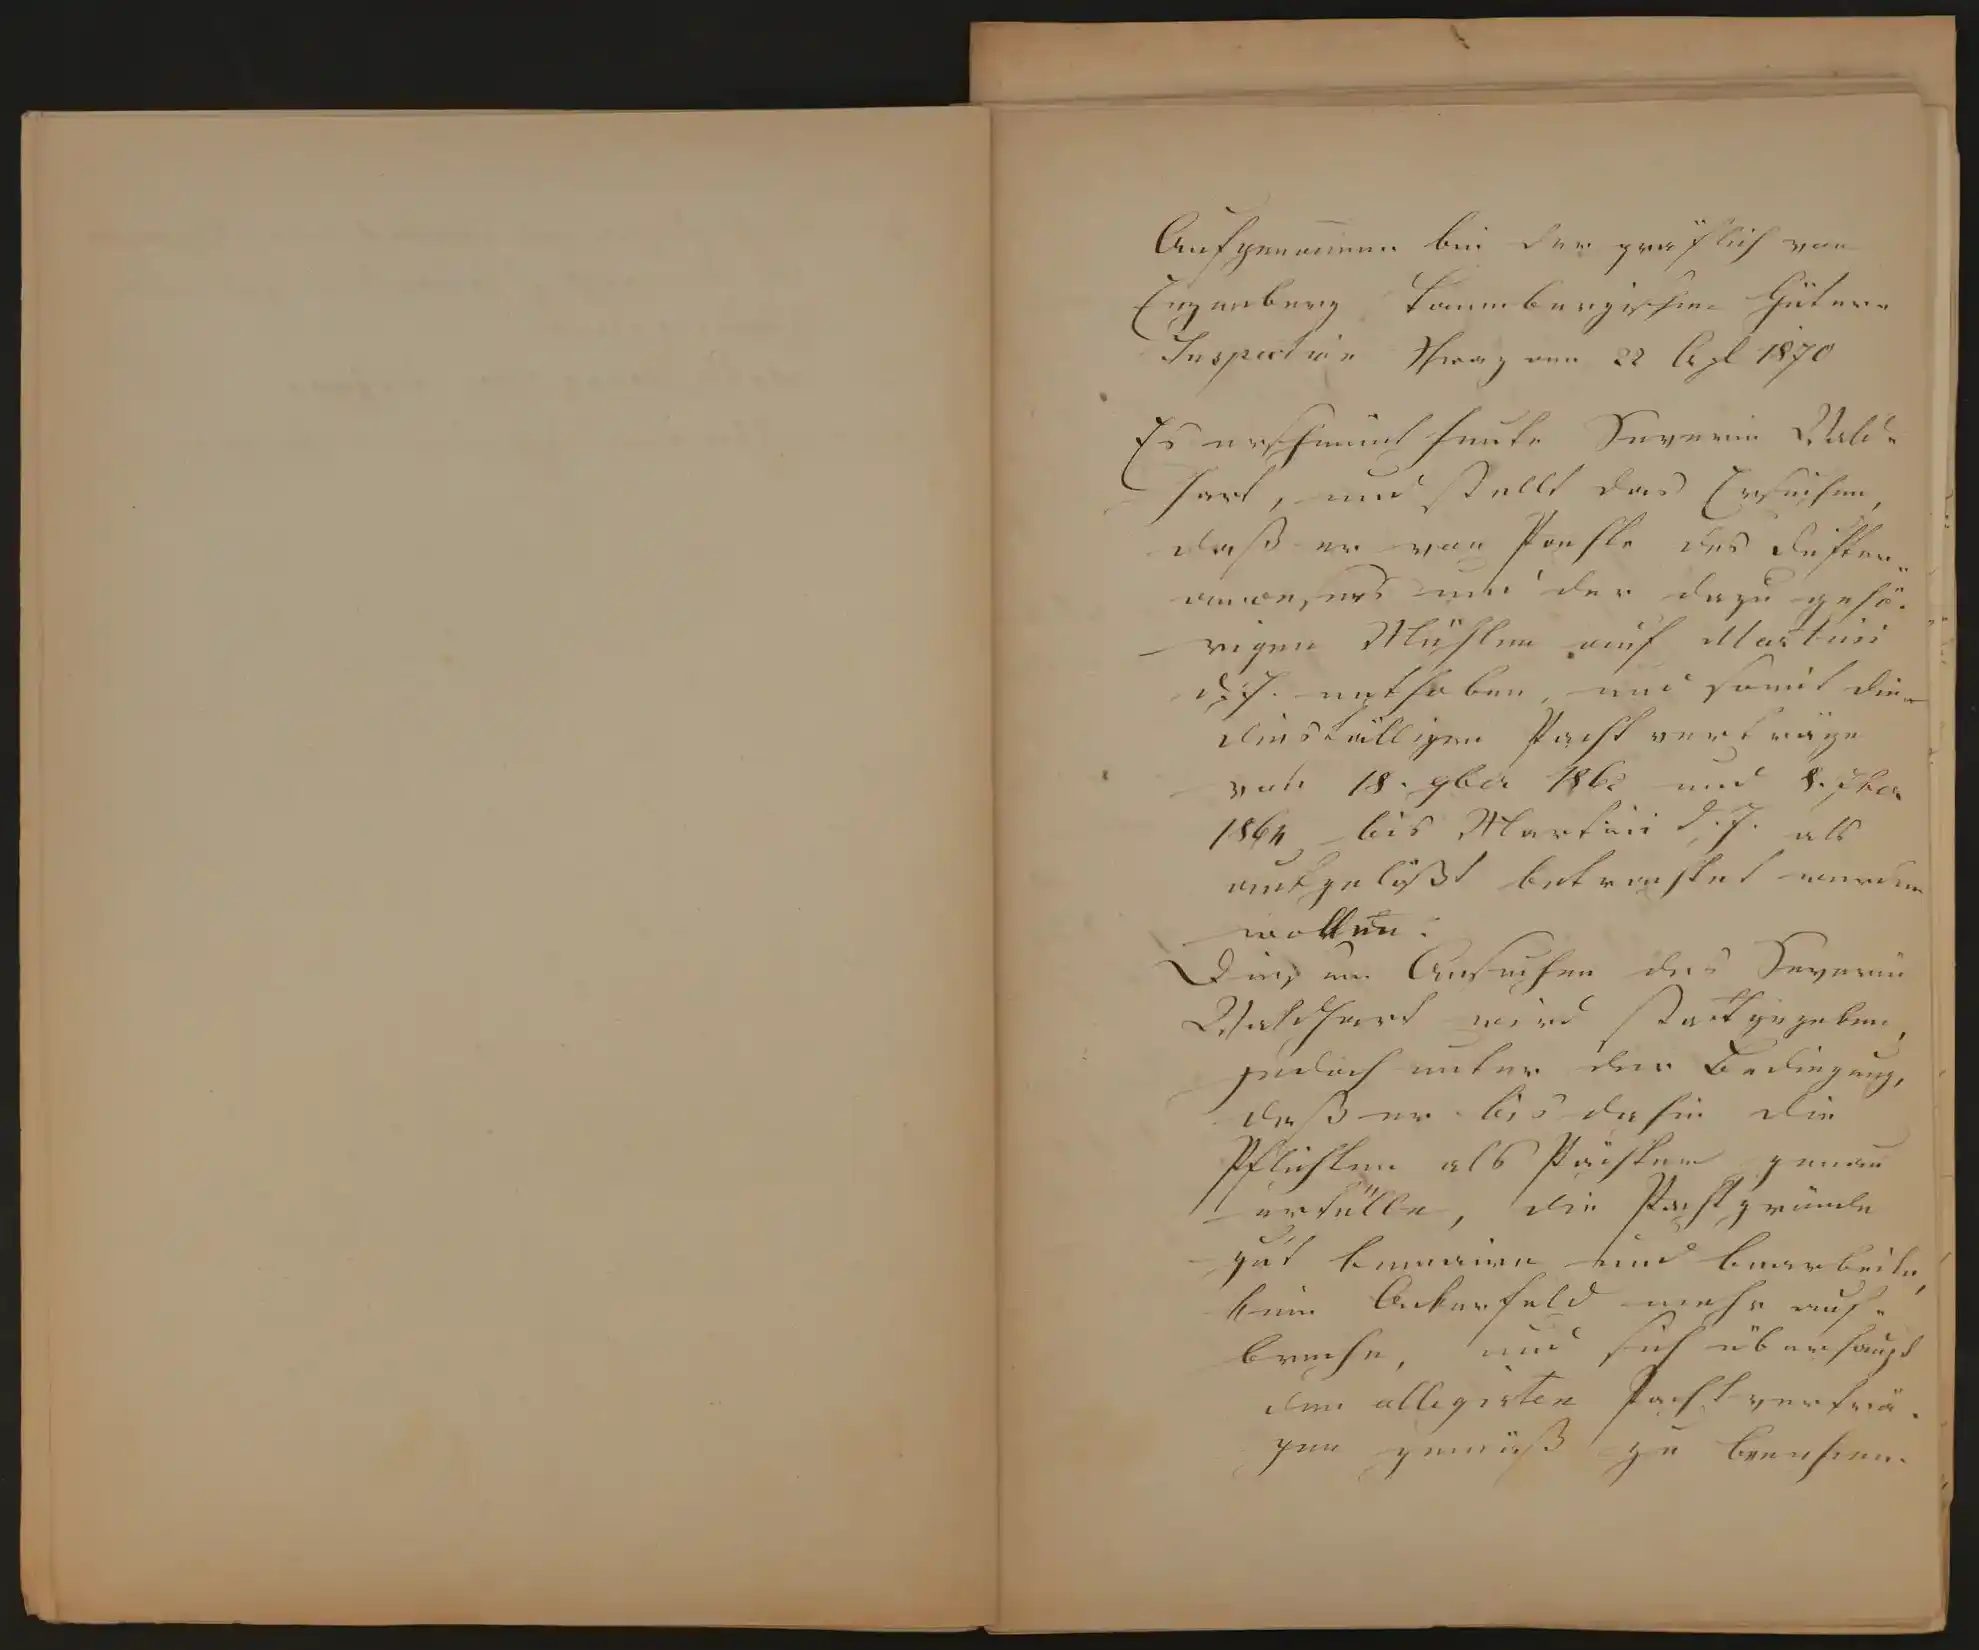 Aufgenommen bei der gräflich von
Enzenberg Tannenbergischen Güter-
Inspection Schwaz am 22 Apl 1870
Es erscheint heute Severin Wald-
hart, und stellt das Ersuchen,
daß er vom Pachte des
anwesens und der dazu gehö-
rigen Mühlen auf Martini
d. J. enthoben, und somit die
diesfälligen Pachtverträge
von 18. 9ber 186 und 8.
1864 bis Martini d. J. als
aufgelößt betrachtet werden
wollen.
Diesem Ansuchen des Severin
Waldhart wird stattgegeben,
jedoch unter der Bedingung,
daß er bis dahin die
Pflichten als Pächter genau
erfülle, die Pachtgründe
gut und bearbeite,
kein Ackerfeld mehr auf-
breche, und sich überhaupt
den allegirten Pachtverträ-
gen gemäß zu benehmen.